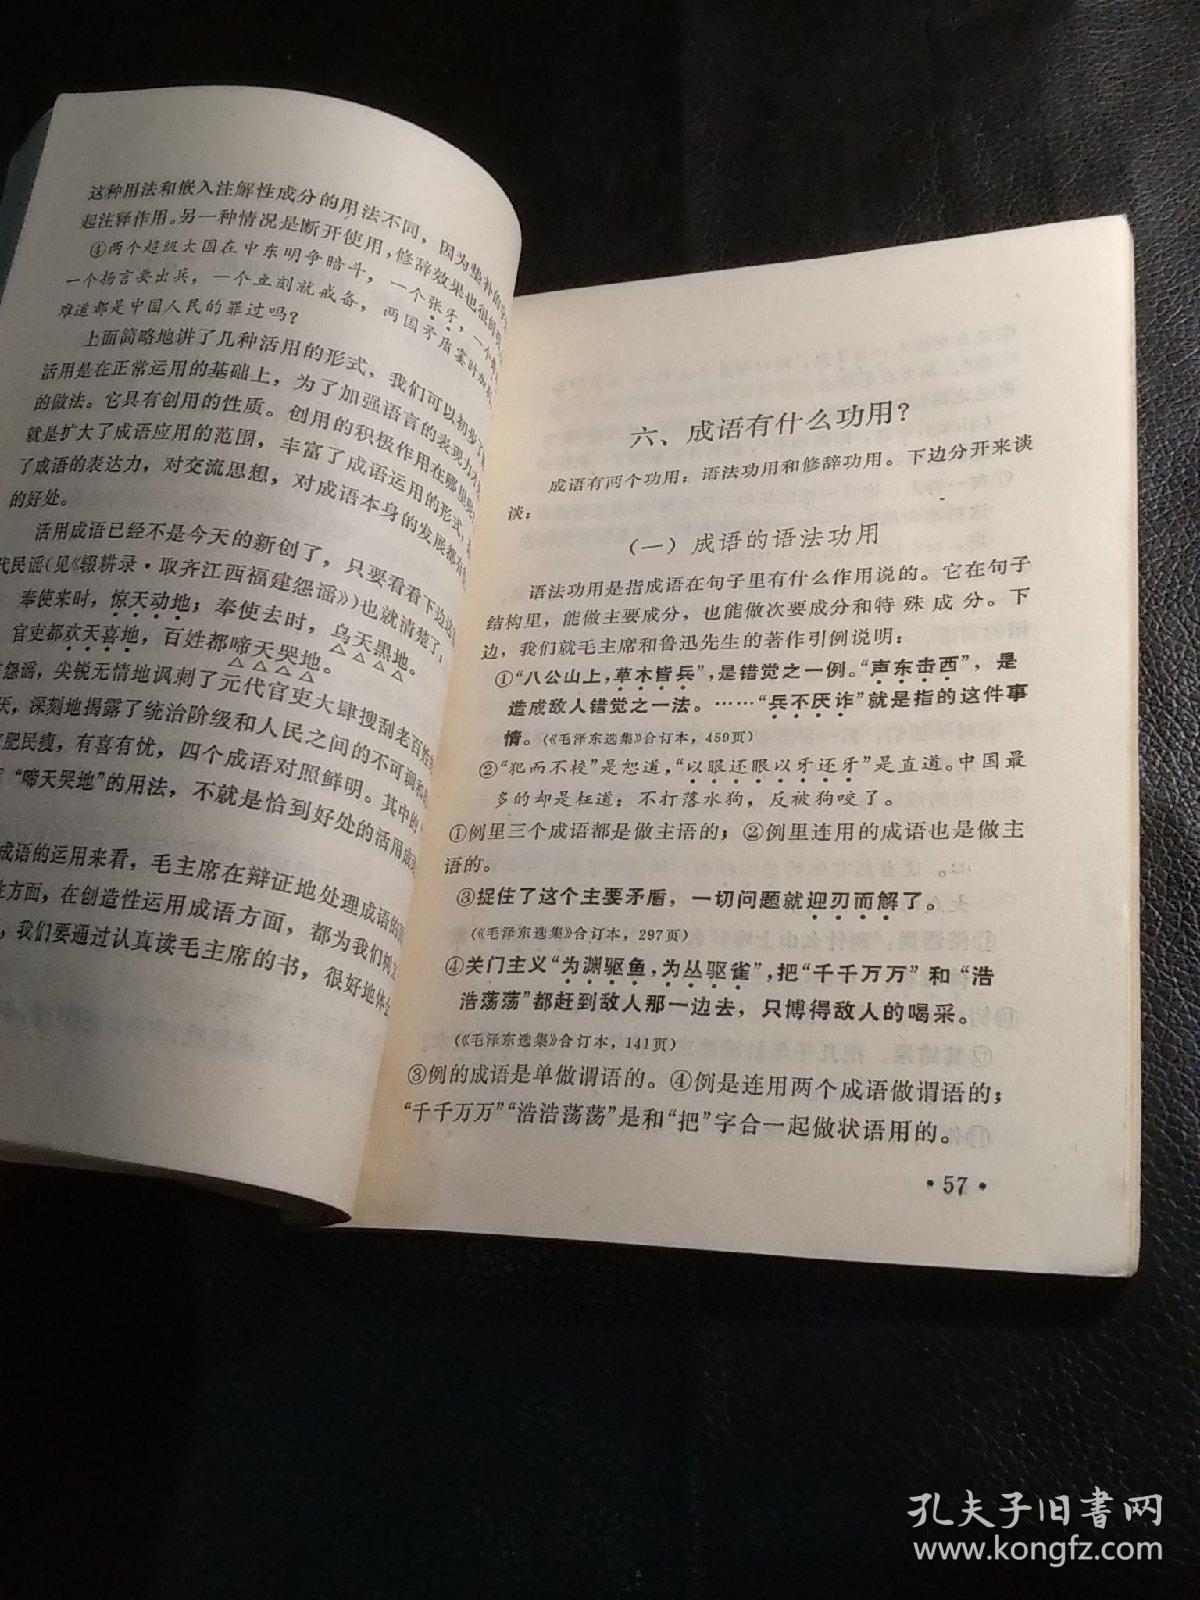 这种用法和嵌入注解性成分的用法不同，因为垫补的
起注释作用。另一种情况是断开使用，修辞效果也很
④两个超级大国在中东明争暗斗，一个张牙，一个
一个扬言要出兵，一个立刻就戒备，两国矛盾
难道都是中国人民的罪过吗？
上面简略地讲了几种活用的形式，我们可以初步
活用是在正常运用的基础上，为了加强语言的表现力
的做法。它具有创用的性质。创用的积极作用在哪里
就是扩大了成语应用的范围，丰富了成语运用的形式，
了成语的表达力，对交流思想，对成语本身的发展都有
的好处。
活用成语已经不是今天的新创了，只要看看下边
代民谣（见《辍耕录·取齐江西福建怨谣》）也就清楚了：
奉使来时，惊天动地；奉使去时，乌天黑地。
官吏都欢天喜地，百姓都啼天哭地。
怨谣，尖锐无情地讽刺了元代官吏大肆搜刮老百姓
，深刻地揭露了统治阶级和人民之间的不可调和
肥民瘦，有喜有忧，四个成语对照鲜明。其中的
“啼天哭地”的用法，不就是恰到好处的活用成
成语的运用来看，毛主席在辩证地处理成语的
性方面，在创造性运用成语方面，都为我们树立
，我们要通过认真读毛主席的书，很好地体会
六、成语有什么功用？
成语有两个功用：语法功用和修辞功用。下边分开来谈
谈：
（一）成语的语法功用
语法功用是指成语在句子里有什么作用说的。它在句子
结构里，能做主要成分，也能做次要成分和特殊成分。下
边，我们就毛主席和鲁迅先生的著作引例说明：
①“八公山上，草木皆兵”，是错觉之一例。“声东击西”，是
造成敌人错觉之一法。……“兵不厌诈”就是指的这件事
情。（《毛泽东选集》合订本，459页）
②“犯而不校”是恕道，“以眼还眼以牙还牙”是直道。中国最
多的却是枉道：不打落水狗，反被狗咬了。
①例里三个成语都是做主语的；②例里连用的成语也是做主
语的。
③捉住了这个主要矛盾，一切问题就迎刃而解了。
（《毛泽东选集》合订本，297页）
④关门主义“为渊驱鱼，为丛驱雀”，把“千千万万”和“浩
浩荡荡”都赶到敌人那一边去，只博得敌人的喝采。
（《毛泽东选集》合订本，141页）
③例的成语是单做谓语的。④例是连用两个成语做谓语的；
“千千万万”“浩浩荡荡”是和“把”字合一起做状语用的。
·57·
孔夫子旧书网
www.kongfz.com